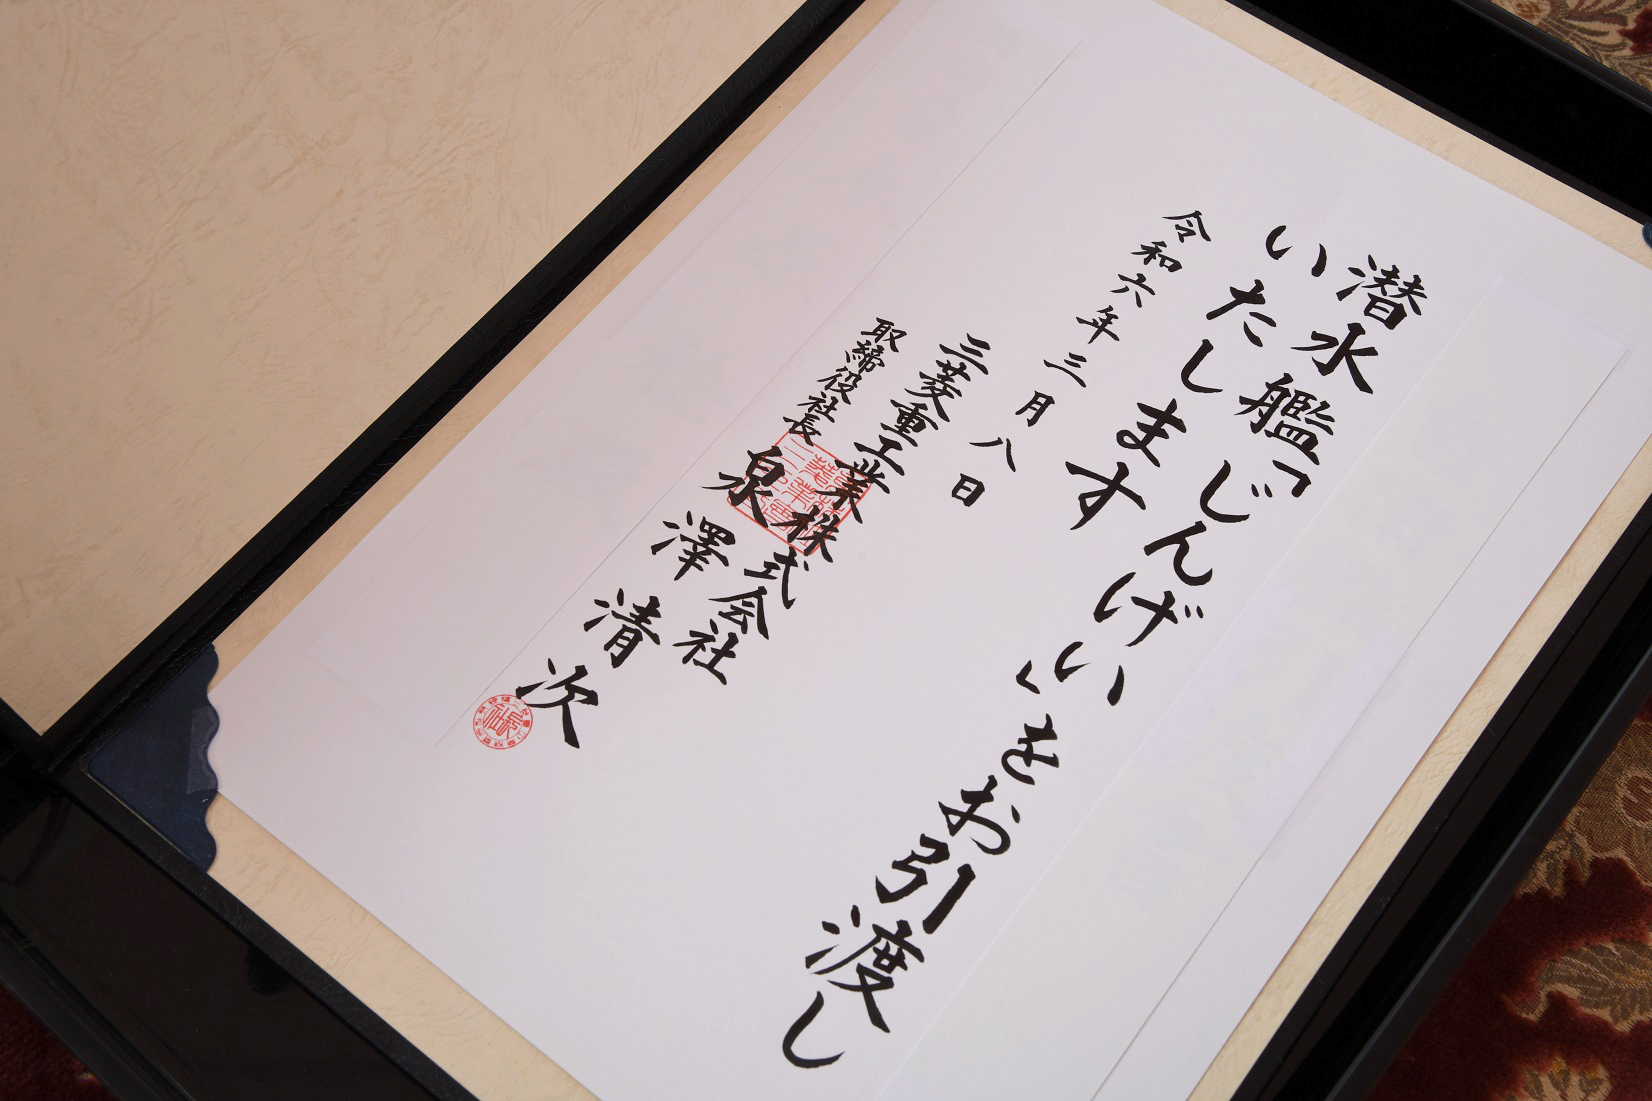 潜水艦「じんげい」をお引渡し
いたします
令和六年三月八日
三菱重工業株式会社
取締役社長 泉澤清次